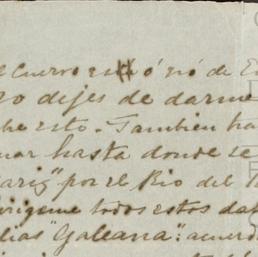 Cuervo está ó nó de
ro dijes de darme
he esto. Tambien ha
nar hasta donde se
ariz" por el Rio del
irigeme todos estos da
lias "Galeana": acuerd